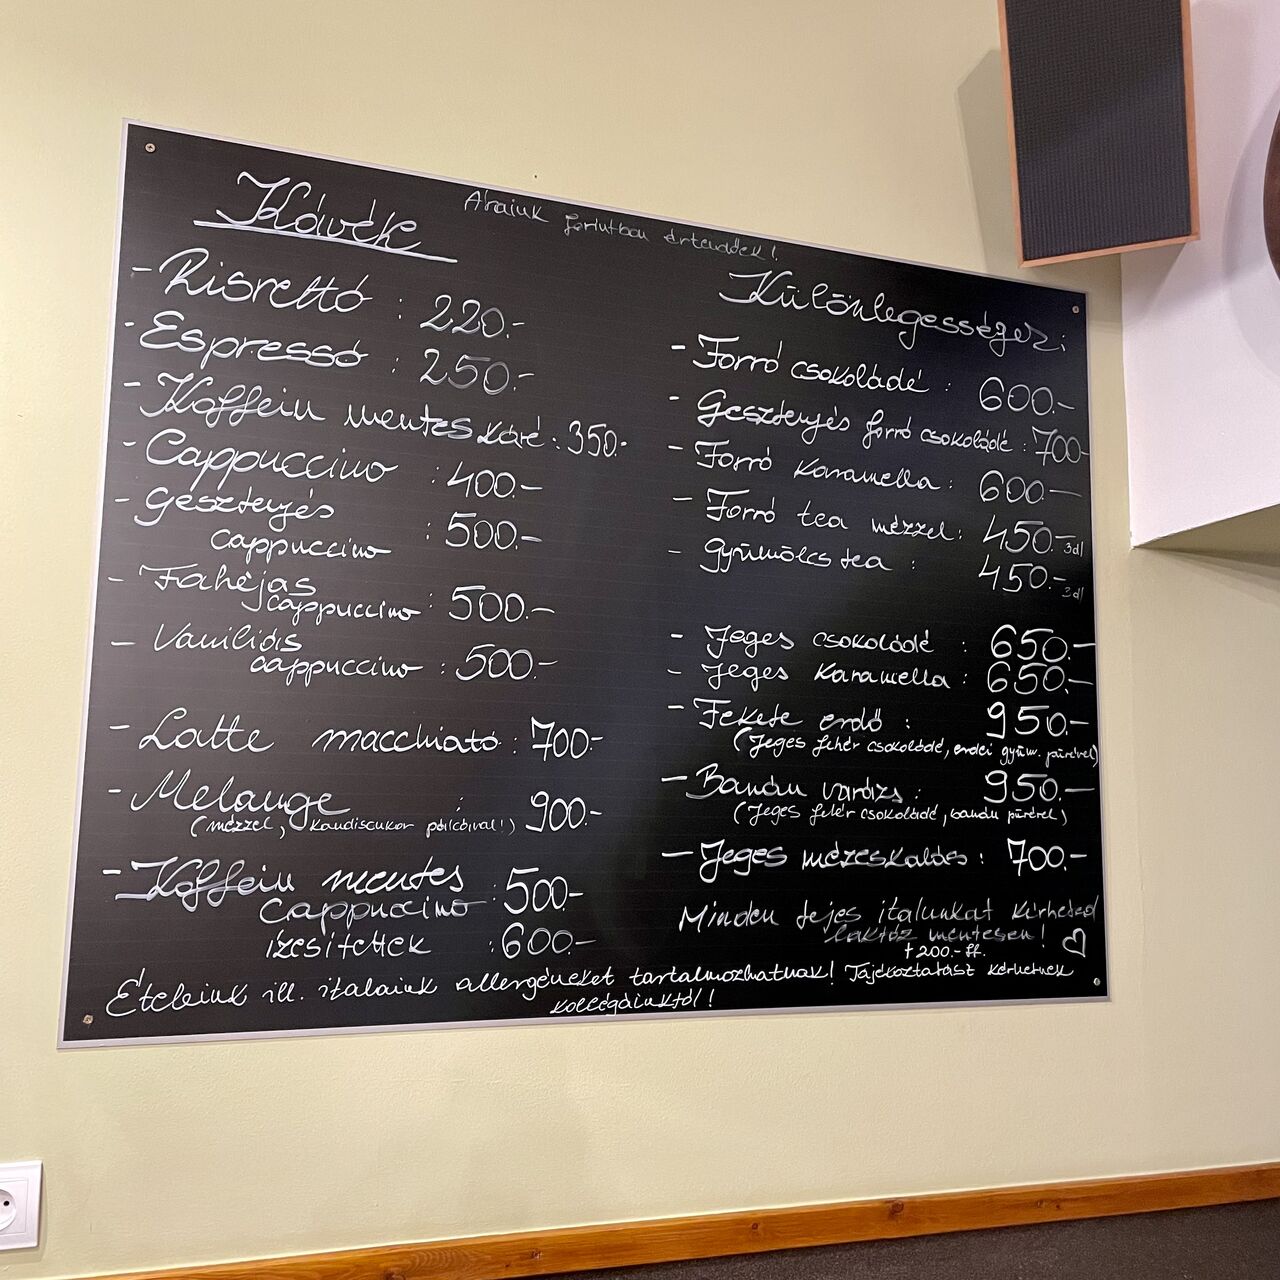 Áraink forintban értendőek!
Kávék
- Risrettó : 220.-
- Espressó : 250.-
- Koffein mentes kávé : 350.-
- Cappuccino : 400.-
- Gesztenyés
cappuccino : 500.-
- Fahéjas
cappuccino : 500.-
- Vaniliás
cappuccino : 500.-
- Latte macchiató : 700.-
- Melange : 900.-
(mézzel, kandiscukor pálcával!)
- Koffein mentes
cappuccino : 500.-
izesitettek : 600.-
Különlegességek:
- Forró csokoládé : 600.-
- Gesztenyés forró csokoládé : 700.-
- Forró karamella : 600.-
- Forró tea mézzel : 450.- 3dl
- Gyümölcs tea : 450.- 3dl
- Jeges csokoládé : 650.-
- Jeges karamella : 650.-
- Fekete erdő : 950.-
(Jeges fehér csokoládé, erdei gyüm. pürével)
- Banán varázs : 950.-
(Jeges fehér csokoládé, banán pürével)
- Jeges mézeskalács : 700.-
Minden tejes italunkat kérheted
laktóz mentesen!
+200.- ft.
Ételeink ill. italaink allergéneket tartalmozhatnak! Tájékoztatást kérhetnek
kollégáinktól!